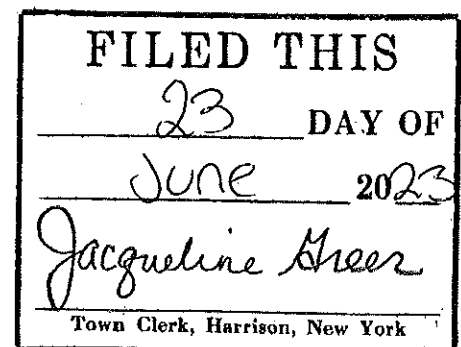 FILED THIS
23 DAY OF
June 2023
Jacqueline Greer
Town Clerk, Harrison, New York